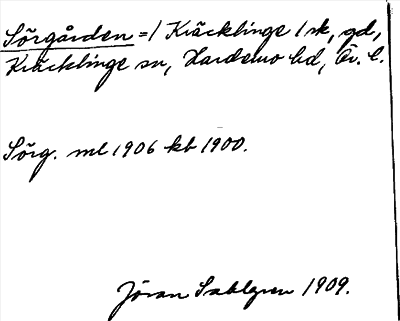 Sörgården = 1 Kräcklinge 1 sk, gd,
Kräcklinge sn, Hardemo hd, Ör. l.
Sörg. ml 1906 kb 1900.
Jöran Sahlgren 1909.